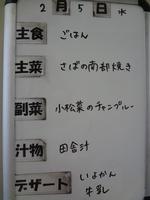 2月5日水
主食 ごはん
主菜 さばの南部焼き
副菜 小松菜のチャンプルー
汁物 田舎汁
デザート いよかん
牛乳